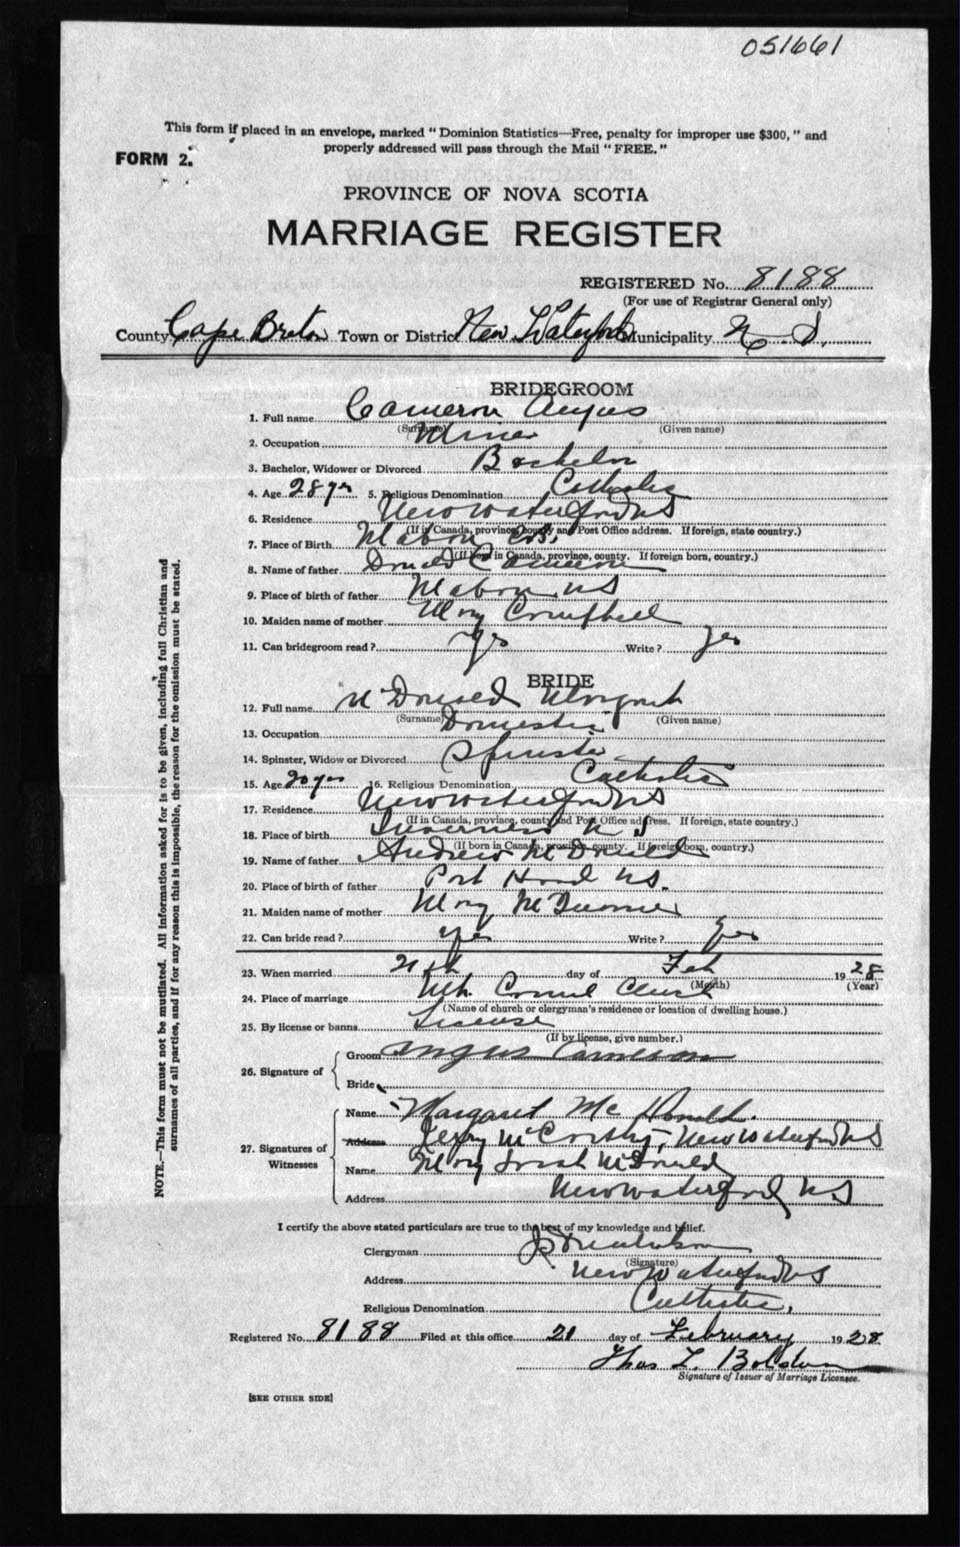 051661
This form if placed in an envelope, marked "Dominion Statistics—Free, penalty for improper use $300," and
properly addressed will pass through the Mail "FREE."
FORM 2.
PROVINCE OF NOVA SCOTIA
MARRIAGE REGISTER
REGISTERED No. 8188
(For use of Registrar General only)
County Cape Breton Town or District New Waterford Municipality N. S.
BRIDEGROOM
1. Full name Cameron Angus
(Surname) (Given name)
2. Occupation Miner
3. Bachelor, Widower or Divorced Bachelor
4. Age 28 yrs 5. Religious Denomination Catholic
6. Residence New Waterford NS
(If in Canada, province, county and Post Office address. If foreign, state country.)
7. Place of Birth Mabou C.B.
(If born in Canada, province, county. If foreign born, country.)
8. Name of father Donald Cameron
9. Place of birth of father Mabou NS
10. Maiden name of mother Mary Campbell
11. Can bridegroom read? yes Write? yes
BRIDE
12. Full name McDonald Margaret
(Surname) (Given name)
13. Occupation Domestic
14. Spinster, Widow or Divorced Spinster
15. Age 20 yrs 16. Religious Denomination Catholic
17. Residence New Waterford NS
(If in Canada, province, county and Post Office address. If foreign, state country.)
18. Place of birth Inverness N S
(If born in Canada, province, county. If foreign born, country.)
19. Name of father Andrew McDonald
20. Place of birth of father Port Hood NS.
21. Maiden name of mother Mary
22. Can bride read? yes Write? yes
23. When married day of Feb 1928
(Month) (Year)
24. Place of marriage Mt. Carmel Church
(Name of church or clergyman's residence or location of dwelling house.)
25. By license or banns License
(If by license, give number.)
26. Signature of
Groom Angus Cameron
Bride
27. Signatures of Witnesses
Name Margaret Mc Donald.
Address Jerry McCarthy, New Waterford NS
Name Mary McDonald
Address New Waterford NS
I certify the above stated particulars are true to the best of my knowledge and belief.
Clergyman
(Signature)
Address New Waterford NS
Religious Denomination Catholic.
Registered No. 8188 Filed at this office 21 day of February 1928
Thos L.
Signature of Issuer of Marriage Licenses.
[SEE OTHER SIDE]
NOTE.—This form must not be mutilated. All information asked for is to be given, including full Christian and
surnames of all parties, and if for any reason this is impossible, the reason for the omission must be stated.